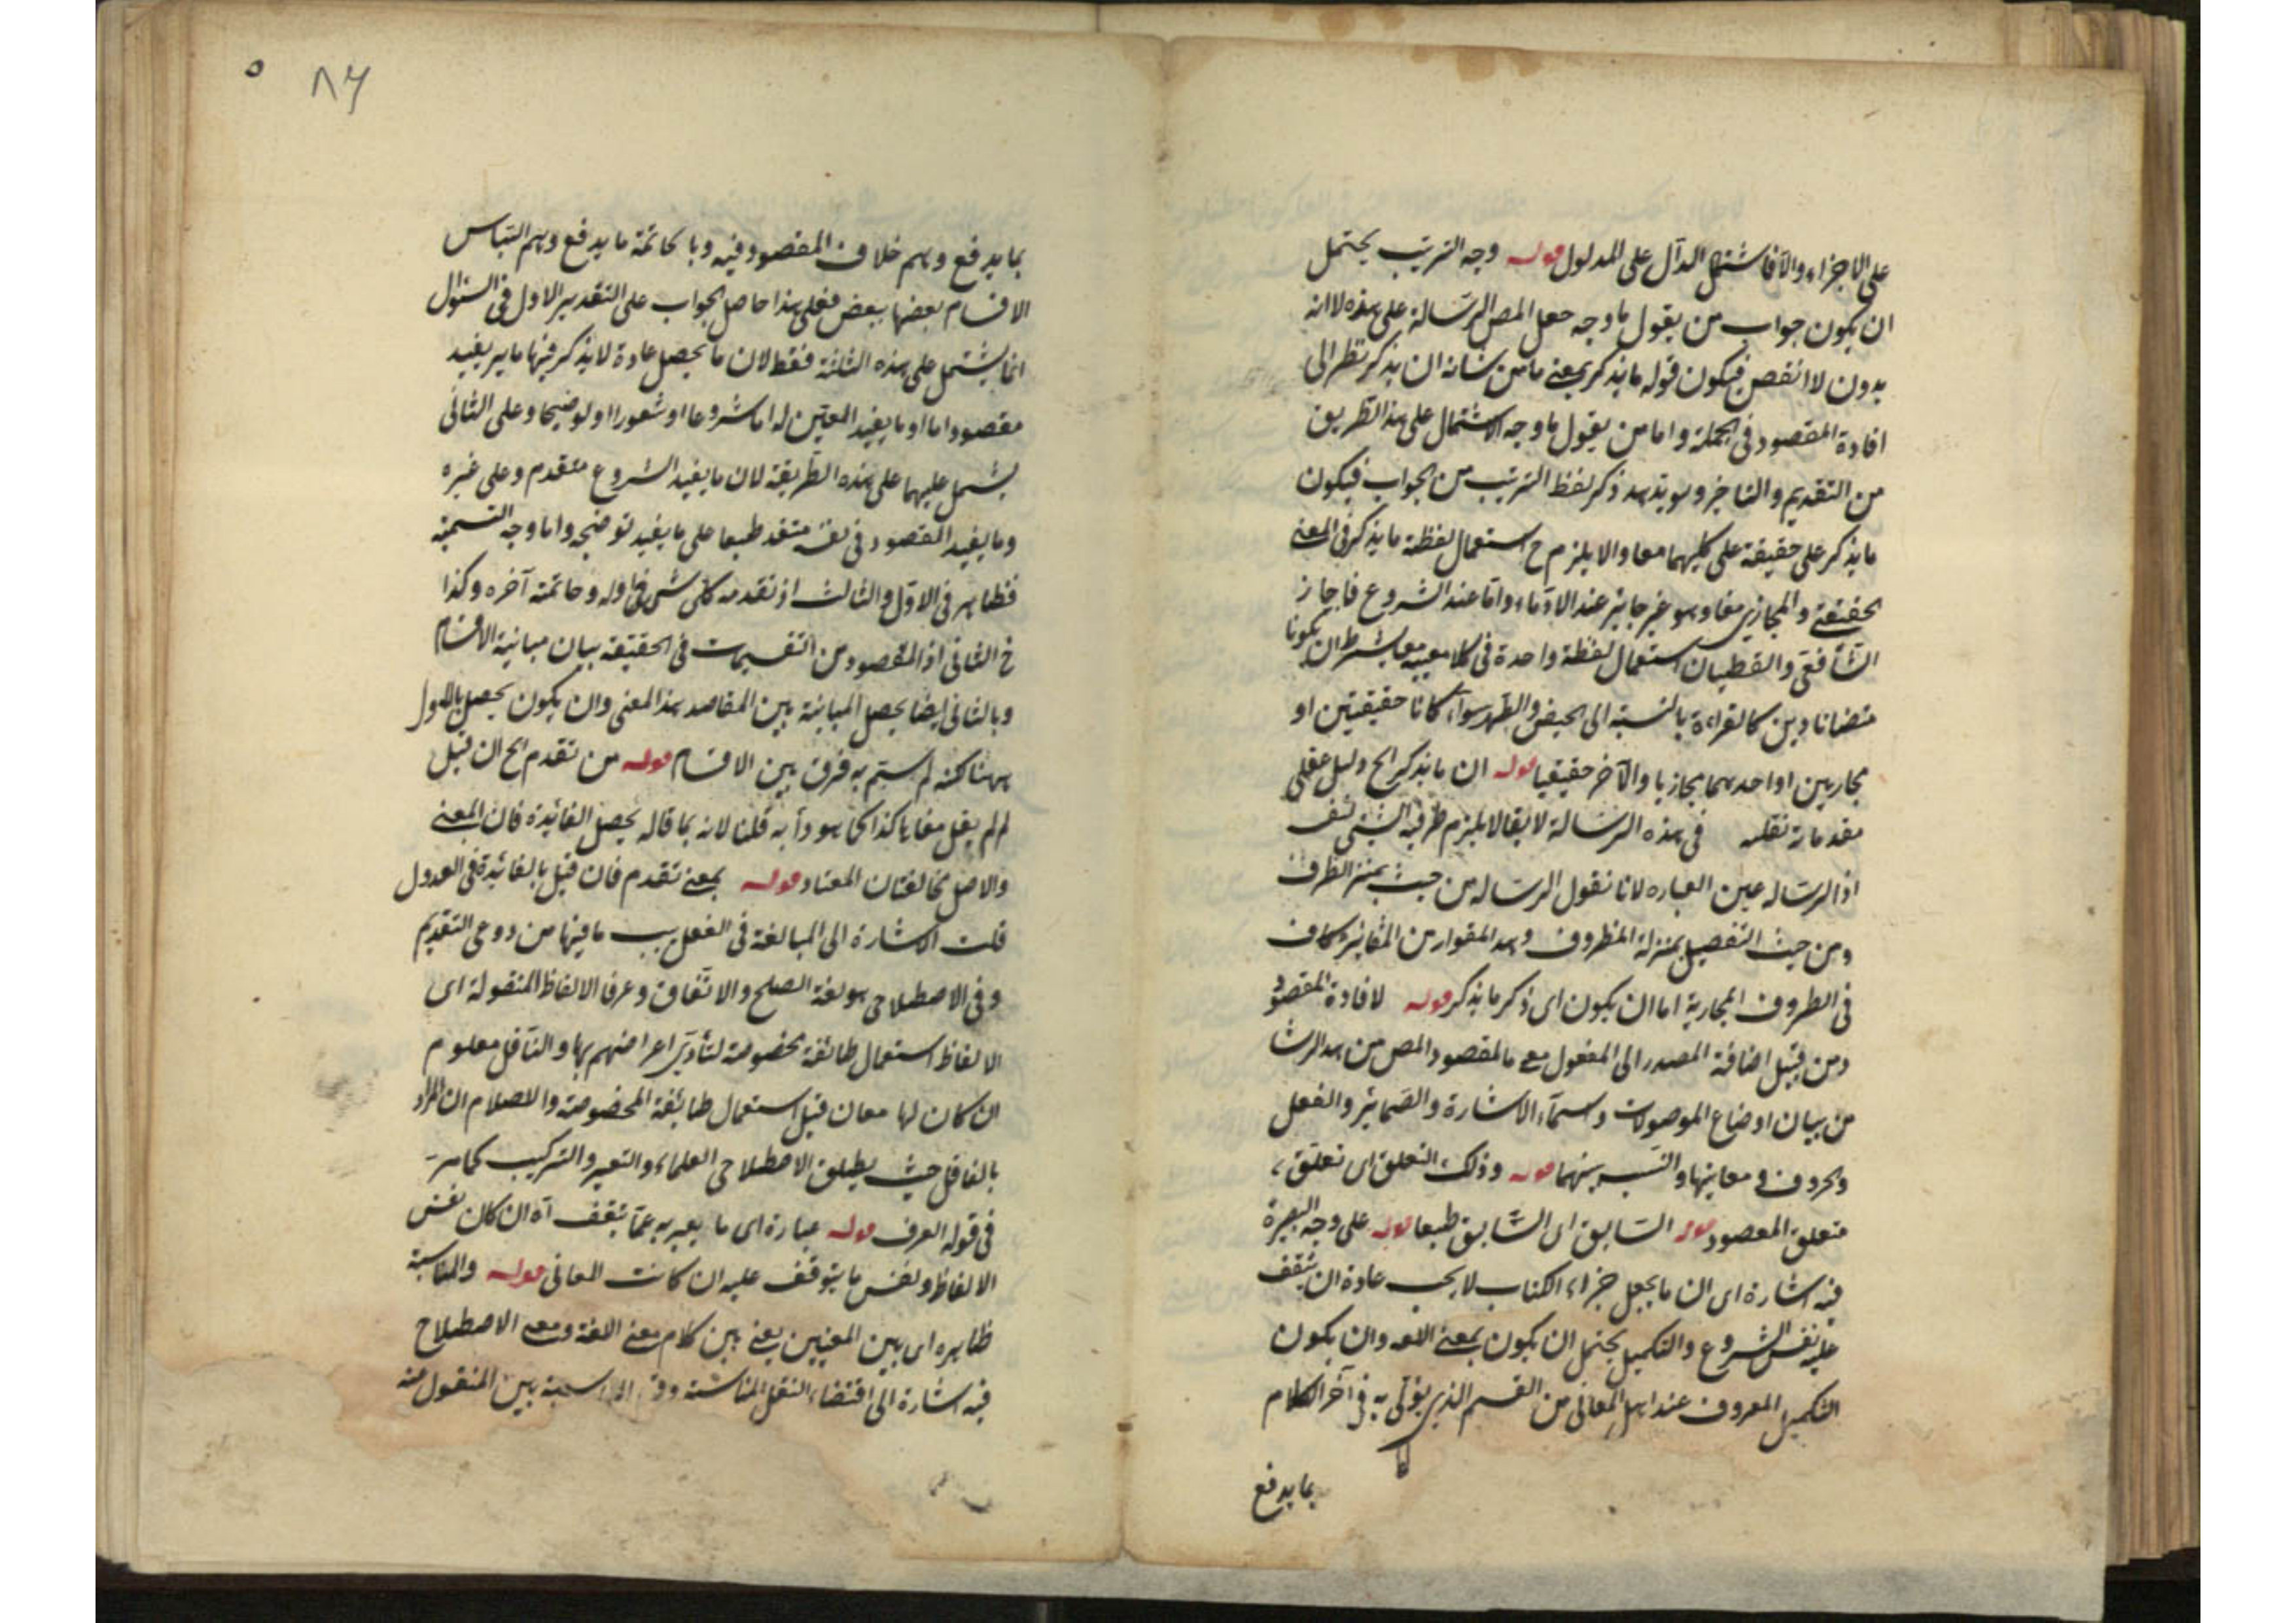 على الاجزاء والا فاشتمل الدال على المدلول قوله وجه الترتيب يحتمل
ان يكون جواب من يقول ما وجه جعل المص الرسالة على هذه لا انه
بدون لا انقص فيكون قوله ما يذكر بمعنى ما من شانه ان يذكر نظر الى
افادة المقصود فى الجملة واما من يقول ما وجه الاشتمال على هذا الطريق
من التقديم والتاخير ويؤيد ذكر لفظ الترتيب من الجواب فيكون
ما يذكر على حقيقة على كليهما معا والا يلزم ح استعمال لفظة ما يذكر فى المعنى
الحقيقى والمجازى معا وهو غير جايز عند الادباء واما عند الشروع فاجاز
الشافعى استعمال لفظة واحدة فى كلا معنييه معا بشرط ان يكونا
كالقراءة بالنسبة الى الحيض والطهر سواء كانا حقيقيتين او
مجازيين او احدهما مجازيا والآخر حقيقيا قوله ان ما يذكر الخ دليل عقلى
فى هذه الرسالة لا يقال لا يلزم ظرفية الشئ لنف
اذ الرساله عين العباره لانا نقول الرساله من حيث بمنز الظرف
ومن حيث التفصيل بمنزلة المظروف من التغاير كاف
فى الظروف المجازية اما ان يكون اى ذكر ما يذكر قوله لافادة المقصود
ومن قبيل اضافة المصدر الى المفعول مع ما المقصود المص من
من بيان اوضاع الموصولات واسماء الاشارة والضماير والفعل
والحروف ومعاينها والنسب بينهما قوله وذلك التعلق اى تعلق
متعلق المقصود قوله السابق اى السابق طبعا قوله على وجه البصيرة
فيه اشارة اى ان ما يجعل جزاء الكتاب لا يجب عادة ان يتقف
عليه نفس الشروع والتكميل يحتمل ان يكون بمعنى اللغه وان يكون
التكميل المعروف عند اهل المعانى من القسم الذى يؤتى به فى آخر الكلام
بما يدفع
٨٦
بما يدفع وهم خلاف المقصود فيه وبا لخاتمة ما يدفع وهم التباس
الاقسام بعضها ببعض فعلى هذا حاصل الجواب على التقدير الاول فى السئوال
انما يشتمل على هذه الثلثة فقط لان ما يحصل عادة لا يذكر فيها ما يريفيد
مقصودا اما او ما يفيد المعين له اما شروعا او شعورا او توضيحا وعلى الثانى
يشتمل عليهما على هذه الطريقة لان ما يفيد الشروع متقدم وعلى غيره
وما يفيد المقصود فى نفسه متقد طبعا على ما يفيد توضيحه واما وجه التسمية
فظاهر فى الاول والثالث اذ تقدمه كل شئ اوله وخاتمته آخره وكذا
فى الثانى اذ المقصود من التقسيمات فى الحقيقه بيان مباينة الاقسام
وبالثانى ايضا يحصل المباينة بين المقاصد بهذا المعنى وان يكون يحصل بالاول
ههنا لكنه لم يستم به فرق بين الاقسام قوله من تقدم الخ ان قيل
لم لم يقل معا ياكذا كما هو دأبه قلنا لانه بما قاله يحصل الفائدة فان المعنى
والاصل مخالفتان المعتاد قوله بمعنى تقدم فان قيل بالفائدة فى العدول
قلت الاشارة الى المبالغة فى الفعل بسبب ما فيها من دوعى التقديم
وفى الاصطلاحى هو لغة الصلح والاتفاق وعرفا الالفاظ المنقولة اى
الالفاظ استعمال طائفة مخصوصة لتأدى اغراضهم بها والناقل معلوم
ان كان لها معان قبل استعمال طايفة المخصوصة والاصلام ان المراد
بالناقل حيث يطلق الاصطلاحى العلماء والتعبير والتركيب كما مر
فى قوله العرف قوله عبارة اى ما يعبر به عما يتقف آه ان كان نفس
الالفاظ ونفس ما يتوقف عليه ان كانت المعانى قوله والمناسبة
ظاهره اى بين المعنيين يعنى بين كلام معنى اللغة ومعنى الاصطلاح
فيه اشارة الى اقتضاء النقل المناسبة بين المنقول منه